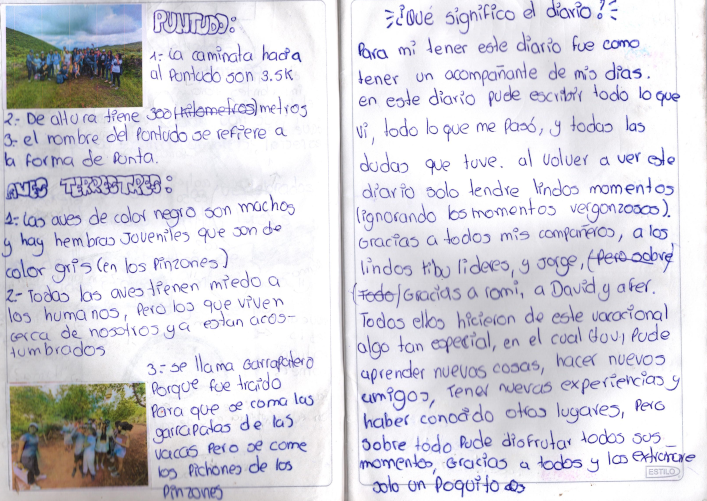 PUNTUDO:
1.- La caminata hacia
al Puntudo son 3.5K
2.- De altura tiene 300 (kilometros) metros
3.- el nombre del Puntudo se refiere a
la forma de Punta.
AVES TERRESTRES:
1.- Las aves de color negro son machos
y hay hembras Joveniles que son de
color gris (en los Pinzones)
2.- Todas las aves tienen miedo a
los humanos, Pero los que viven
cerca de nosotros ya estan acos-
tumbrados
3.- Se llama Garrapatero
Porque fue traido
Para que se coma las
garrapatas de las
vacas Pero se come
los Pichones de los
Pinzones
¿Qué significo el diario?
Para mi tener este diario fue como
tener un acompañante de mis dias.
en este diario Pude escribir todo lo que
vi, todo lo que me Pasó, y todas las
dudas que tuve. al volver a ver este
diario solo tendre lindos momentos
(ignorando los momentos vergonzosos).
Gracias a todos mis compañeros, a los
lindos tibu lideres, y Jorge, (Pero sobre)
(Todo) Gracias a romi, a David y a fer.
Todos ellos hicieron de este vacacional
algo tan especial, en el cual Pude
aprender nuevas cosas, hacer nuevos
amigos, Tener nuevas experiencias y
haber conocido otros lugares, Pero
sobre todo Pude disfrutar todos sus
momentos, Gracias a todos y los extrañare
solo un Poquito
ESTILO